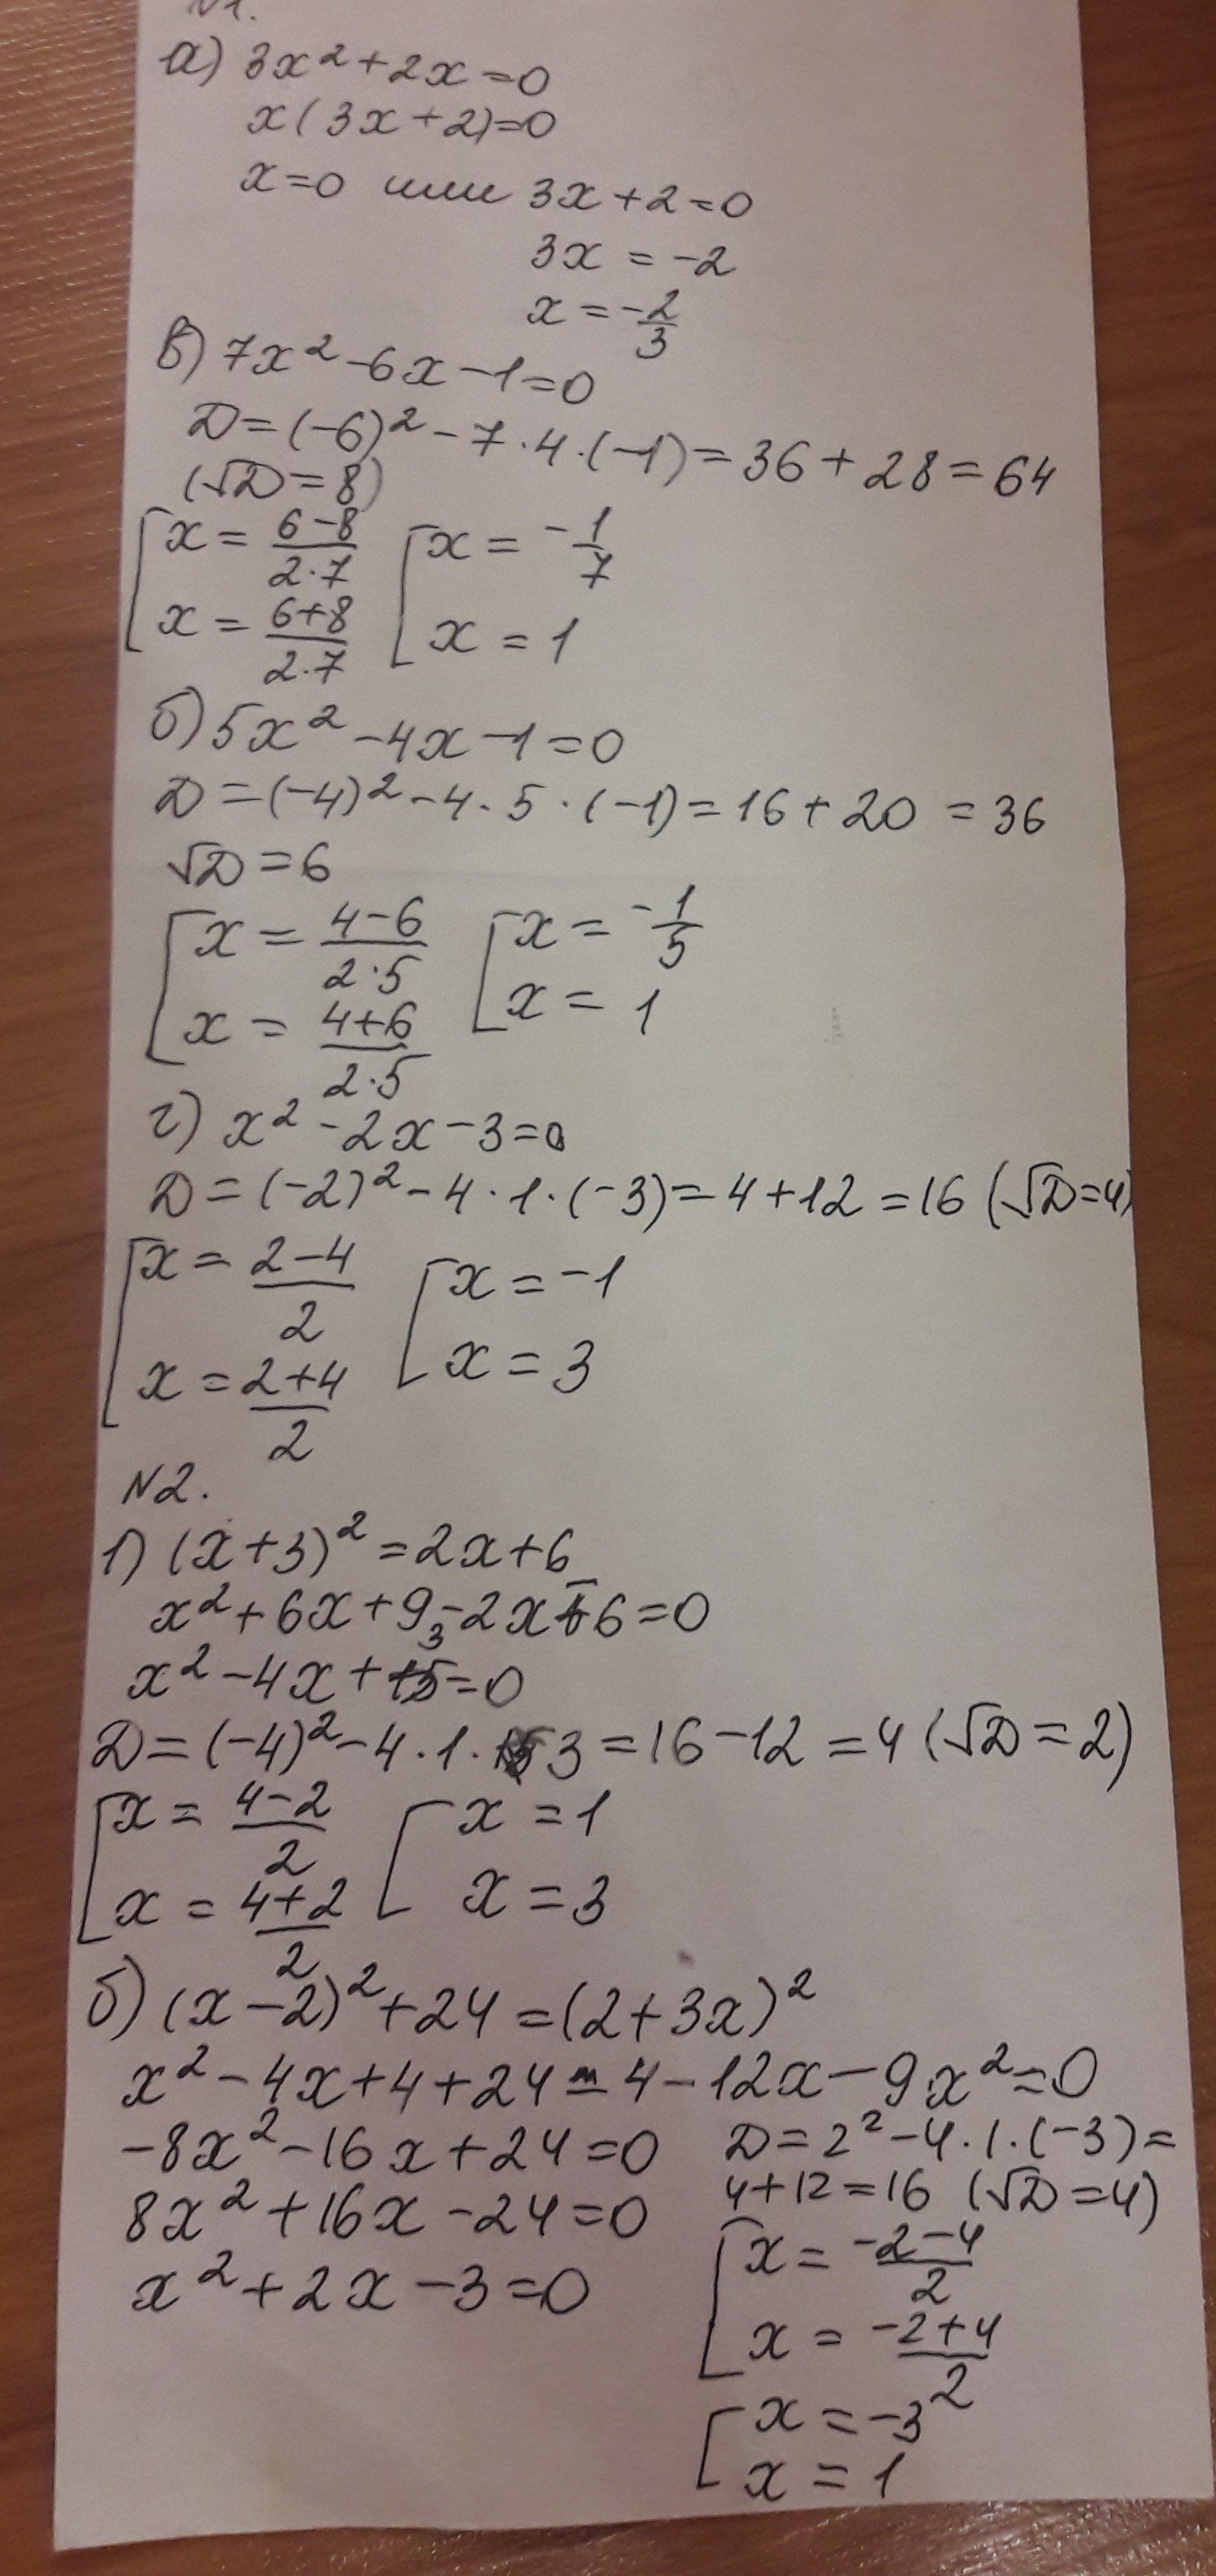 №1.
а) 3x² + 2x = 0
x(3x + 2) = 0
x = 0 или 3x + 2 = 0
3x = -2
x = -2/3
в) 7x² - 6x - 1 = 0
D = (-6)² - 7 · 4 · (-1) = 36 + 28 = 64
(√D = 8)
[ x = (6-8)/(2·7) [ x = -1/7
x = (6+8)/(2·7) x = 1
б) 5x² - 4x - 1 = 0
D = (-4)² - 4 · 5 · (-1) = 16 + 20 = 36
√D = 6
[ x = (4-6)/(2·5) [ x = -1/5
x = (4+6)/(2·5) x = 1
г) x² - 2x - 3 = 0
D = (-2)² - 4 · 1 · (-3) = 4 + 12 = 16 (√D = 4)
[ x = (2-4)/2 [ x = -1
x = (2+4)/2 x = 3
N2.
1) (x + 3)² = 2x + 6
x² + 6x + 9 - 2x - 6 = 0
x² - 4x + 3 = 0
D = (-4)² - 4 · 1 · 3 = 16 - 12 = 4 (√D = 2)
[ x = (4-2)/2 [ x = 1
x = (4+2)/2 x = 3
б) (x - 2)² + 24 = (2 + 3x)²
x² - 4x + 4 + 24 - 4 - 12x - 9x² = 0
-8x² - 16x + 24 = 0
8x² + 16x - 24 = 0
x² + 2x - 3 = 0
D = 2² - 4 · 1 · (-3) =
4 + 12 = 16 (√D = 4)
[ x = (-2-4)/2
x = (-2+4)/2
[ x = -3
x = 1